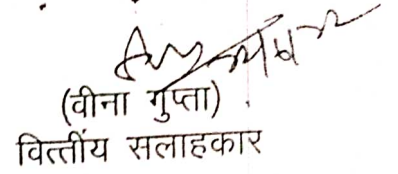 (वीना गुप्ता)
वित्तींय सलाहकार